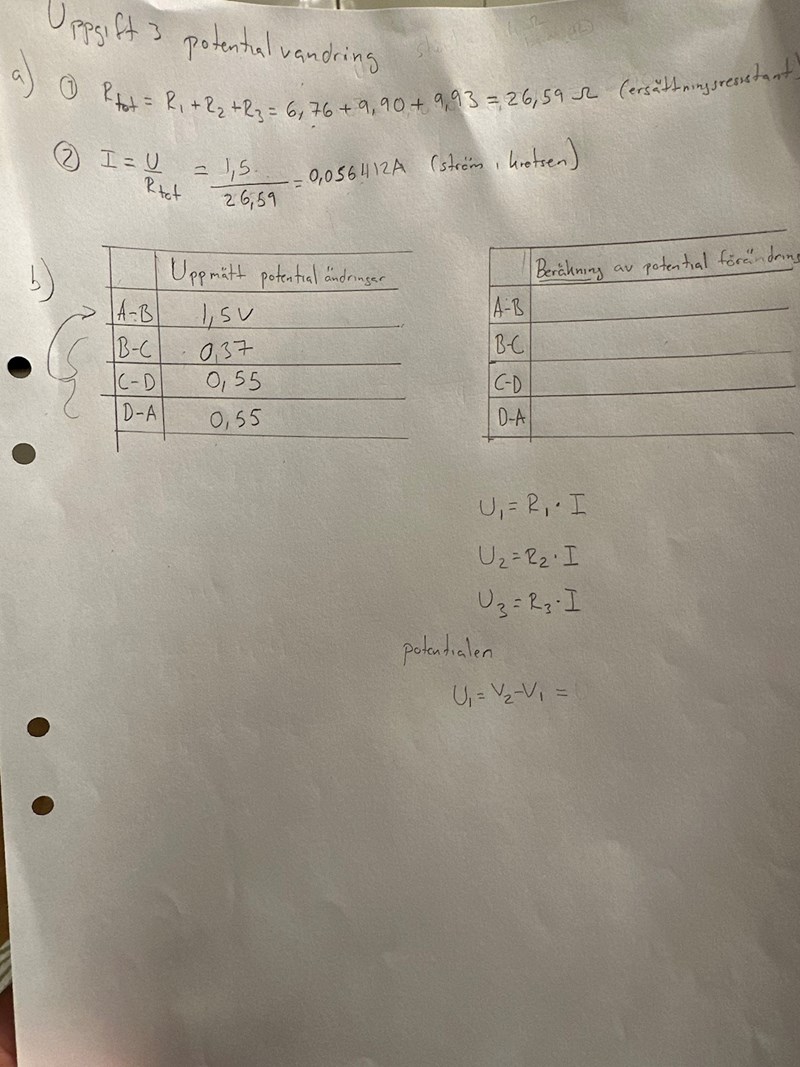 Uppgift 3 potentialvandring
a) ① Rtot = R1 + R2 + R3 = 6,76 + 9,90 + 9,93 = 26,59 Ω (ersättningsresistant)
② I = U/Rtot = 1,5/26,59 = 0,056412A (ström i kretsen)
b)
Uppmätt potential ändringar
A-B 1,5V
B-C 0,37
C-D 0,55
D-A 0,55
Beräkning av potential förändring
A-B
B-C
C-D
D-A
U1 = R1 · I
U2 = R2 · I
U3 = R3 · I
potentialen
U1 = V2 - V1 =